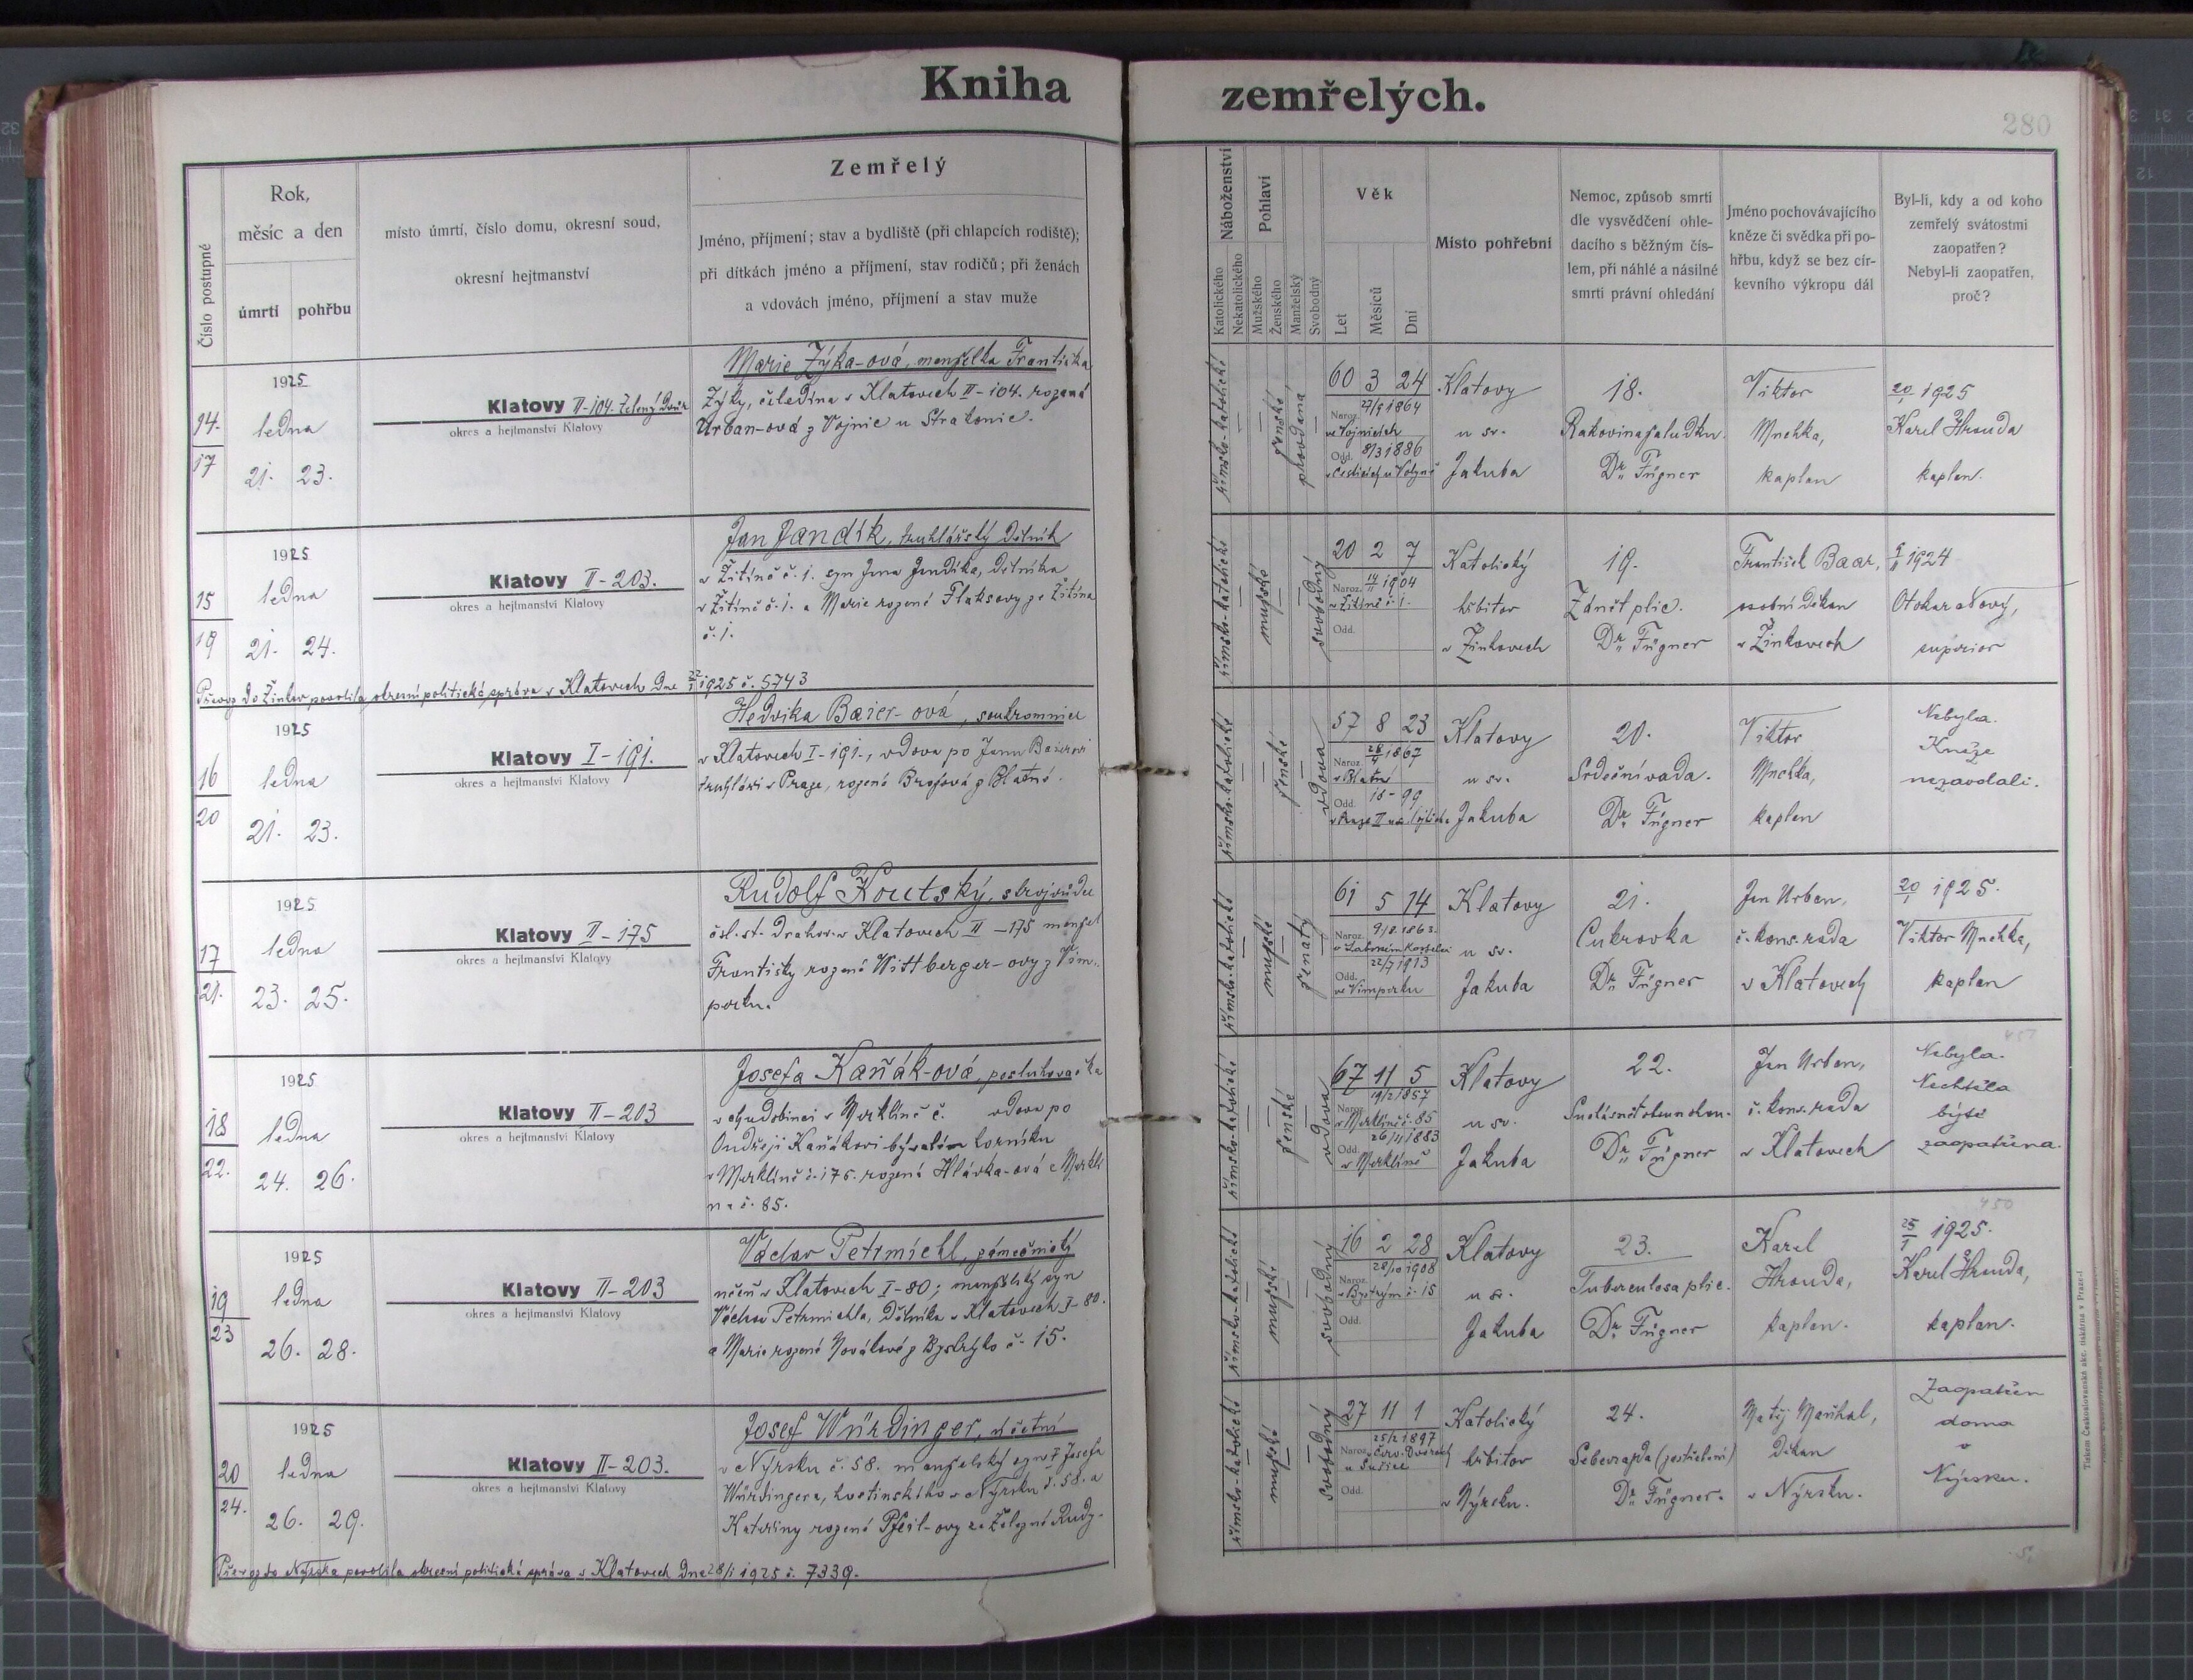 Kniha zemřelých.
280
Číslo postupné
Rok,
měsíc a den
úmrtí
pohřbu
místo úmrtí, číslo domu, okresní soud,
okresní hejtmanství
Zemřelý
Jméno, příjmení; stav a bydliště (při chlapcích rodiště);
při dítkách jméno a příjmení, stav rodičů; při ženách
a vdovách jméno, příjmení a stav muže
Náboženství
Katolického
Nekatolického
Pohlaví
Mužského
Ženského
Manželský
Svobodný
Věk
Let
Měsíců
Dní
Místo pohřební
Nemoc, způsob smrti
dle vysvědčení ohle-
dacího s běžným čís-
lem, při náhlé a násilné
smrti právní ohledání
Jméno pochovávajícího
kněze či svědka při po-
hřbu, když se bez cír-
kevního výkropu dál
Byl-li, kdy a od koho
zemřelý svátostmi
zaopatřen?
Nebyl-li zaopatřen,
proč?
14.
17
1925
ledna
21. 23.
Klatovy II-104. Zelený Dvůr
okres a hejtmanství Klatovy
Marie Zýka-ová, manželka Františka
Zýky, čeledína v Klatovech II-104. rozená
Urban-ová z Vojnic u Strakonic.
římsko-katolické
ženské
provdaná
60 3 24
Naroz. 27/9 1864
ve Vojnicích
Odd. 8/3 1886
v Česticích u Volyně
Klatovy
u sv.
Jakuba
18.
Rakovina žaludku.
Dr. Fügner
Viktor
Mnehka,
kaplan
20/1 1925
Karel Hrouda
kaplan.
15
19
1925
ledna
21. 24.
Klatovy II-203.
okres a hejtmanství Klatovy
Jan Jandík, truhlářský dělník
v Žitíně č. 1. syn Jana Jandíka, dělníka
v Žitíně č. 1. a Marie rozené Flaksovy ze Žitína
č. 1.
Převoz do Žinkov povolila okresní politická správa v Klatovech dne 22/1 1925 č. 5743
římsko-katolické
mužské
svobodný
20 2 7
Naroz. 14/11 1904
v Žitíně č. 1.
Odd.
Katolický
hřbitov
v Žinkovech
19.
Zánět plic.
Dr. Fügner
František Baar,
osobní děkan
v Žinkovech
1924
Otokar Nový,
superior
16
20
1925
ledna
21. 23.
Klatovy I-191.
okres a hejtmanství Klatovy
Hedvika Baier-ová, soukromnice
v Klatovech I-191., vdova po Janu Baierovi
truhláři v Praze, rozená Brožová z Blatné.
římsko-katolické
ženské
vdova
57 8 23
Naroz. 28/4 1867
v Blatné
Odd. 18-99
v Praze II
Klatovy
u sv.
Jakuba
20.
Srdeční vada.
Dr. Fügner
Viktor
Mnehka,
kaplan
Nebyla.
Kněze
nezavolali.
17
21.
1925
ledna
23. 25.
Klatovy II-175
okres a hejtmanství Klatovy
Rudolf Koutský, strojvůdce
čsl. st. drah v Klatovech II-175 manžel
Františky rozené Wittberger-ovy z Vim-
perku.
římsko-katolické
mužské
ženatý
61 5 14
Naroz. 9/8. 1863.
Odd. 22/7 1913
ve Vimperku
Klatovy
u sv.
Jakuba
21.
Cukrovka
Dr. Fügner
Jan Urban,
č. kons. rada
v Klatovech
20/1 1925.
Viktor Mnehka,
kaplan
18
22.
1925
ledna
24. 26.
Klatovy II-203
okres a hejtmanství Klatovy
Josefa Kaňák-ová, posluhovačka
v chudobinci v Merklíně č. vdova po
Ondřeji Kaňákovi bývalém horníku
v Merklíně č. 175. rozená Hlávka-ová z Merklí
na č. 85.
římsko-katolické
ženské
vdova
67 11 5
Naroz. 19/2 1857
v Merklíně č. 85
Odd. 26/11 1883
v Merklíně
Klatovy
u sv.
Jakuba
22.
Dr. Fügner
Jan Urban,
č. kons. rada
v Klatovech
Nebyla.
Nechtěla
býti
zaopatřena.
19
23
1925
ledna
26. 28.
Klatovy II-203
okres a hejtmanství Klatovy
Václav Petrmichl, zámečnický
učeň v Klatovech I-80; manželský syn
Václava Petrmichla, dělníka v Klatovech I-80.
a Marie rozené Novákové z Bystrého č. 15.
římsko-katolické
mužské
svobodný
16 2 28
Naroz. 28/10 1908
v Bystrém č. 15
Odd.
Klatovy
u sv.
Jakuba
23.
Tuberculosa plic.
Dr. Fügner
Karel
Hrouda,
kaplan.
450
25/1 1925.
Karel Hrouda,
kaplan.
20
24.
1925
ledna
26. 29.
Klatovy II-203.
okres a hejtmanství Klatovy
Josef Würdinger, účetní
v Nýrsku č. 58. manželský syn † Josefa
Würdingera, hostinského v Nýrsku č. 58. a
Kateřiny rozené Pfeil-ovy ze Železné Rudy.
Převoz do Nýrska povolila okresní politická správa v Klatovech dne 28/1 1925 č. 7339.
římsko-katolické
mužské
svobodný
27 11 1
Naroz. 25/2 1897
v Červ. Dvorcích
u Sušice
Odd.
Katolický
hřbitov
v Nýrsku.
24.
Sebevražda (zastřelení)
Dr. Fügner.
Matěj Maršál,
děkan
v Nýrsku.
Zaopatřen
doma
v
Nýrsku.